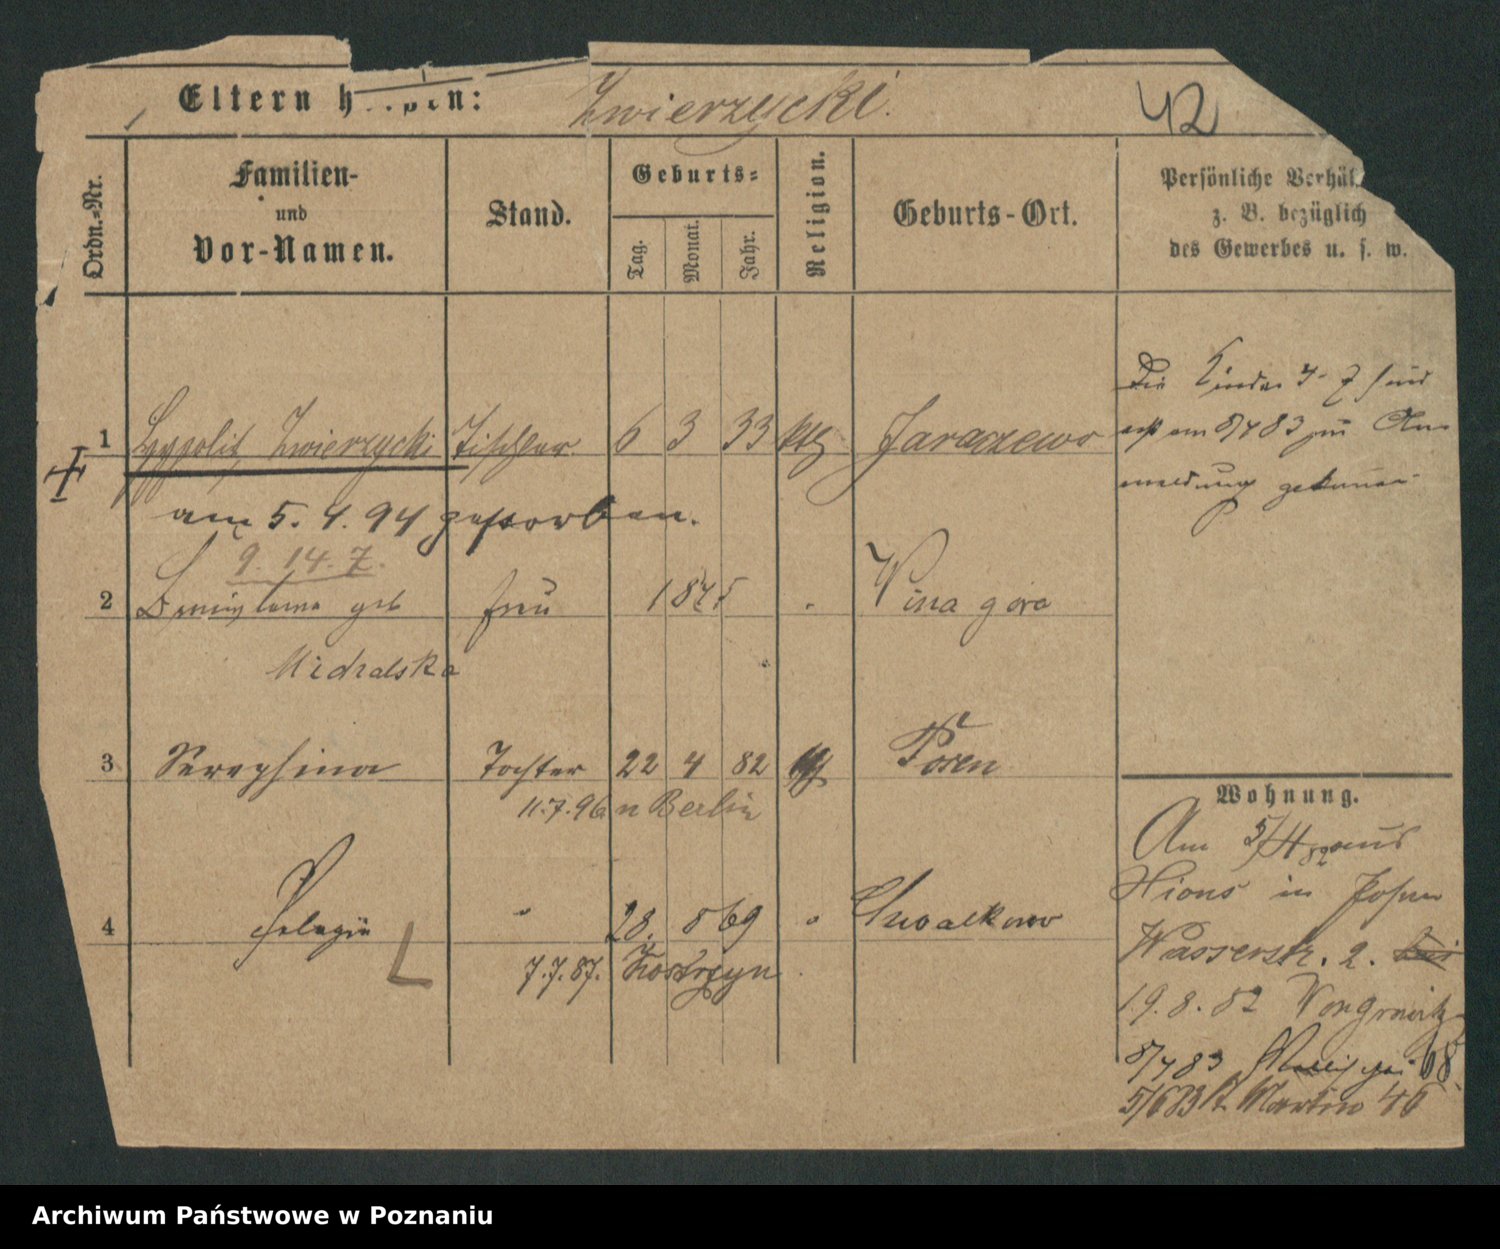 Eltern h
Zwierzycki.
42
Ordn.-Nr.
Familien-
und
Vor-Namen.
Stand.
Geburts-
Tag.
Monat.
Jahr.
Religion.
Geburts-Ort.
Persönliche Verhäl
z. B. bezüglich
des Gewerbes u. s. w.
Die Kinder 4-7 sind
erst am 8/4 83 zur An-
meldung gekommen
1 Hyppolit Zwierzycki Tischler 6 3 33 kth Jaraczewo
am 5. 4. 94 gestorben.
9. 14. 7.
2 geb Frau 1845 " Winagóra
Midralska
3 Seraphina Tochter 22 4 82 Posen
11.7.96 n Berlin
4 Pelagia " 28. 8 69 "
7.7.87. Kostrzyn
Wohnung.
Am 5/4 82 aus
Xions in Posen
Wasserstr. 2.
19. 8. 82
8/4 83 68
5/6 83 St Martin 46
Archiwum Państwowe w Poznaniu